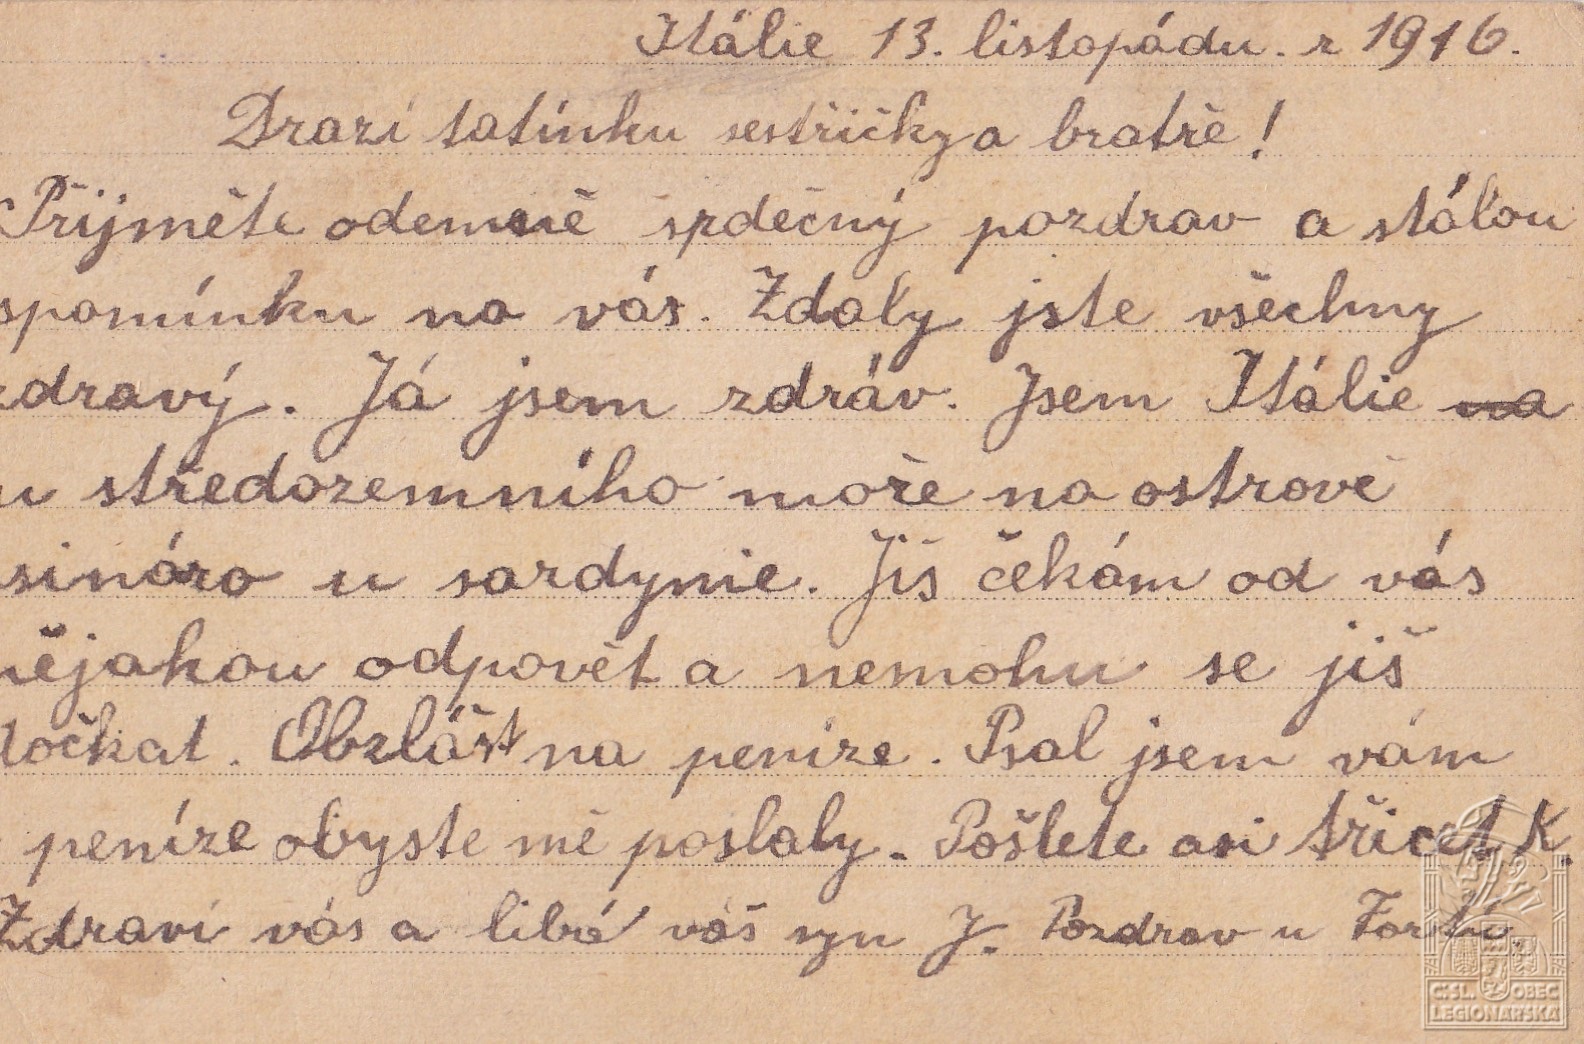 Itálie 13. listopádu. r 1916.
Drazí tatínku sestřičky a bratře!
Přijměte odemně srdečný pozdrav a stálou
spomínku na vás. Zdaly jste všechny
zdravý. Já jsem zdráv. Jsem Itálie na
u středozemního moře na ostrově
sináro u sardynie. Jiš čekám od vás
nějakou odpovět a nemohu se jiš
dočkat. Obzlášt na peníze. Psal jsem vám
peníze obyste mě poslaly. Pošlete asi třicet K.
Zdraví vás a líbá váš syn J. Pozdrav u
ČSL. OBEC
LEGIONÁŘSKÁ